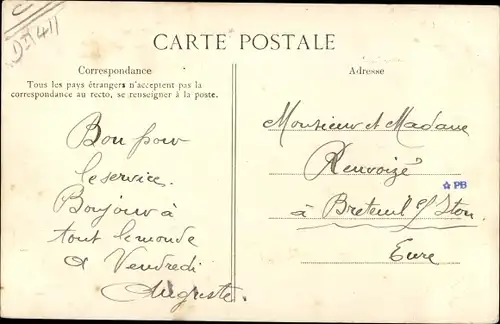 D II 411
CARTE POSTALE
Correspondance
Tous les pays étrangers n'acceptent pas la
correspondance au recto, se renseigner à la poste.
Bon pour
le service.
Bonjour à
tout le monde
a Vendredi
Auguste.
Adresse
Monsieur et Madame
Renvoizé
à Breteuil s/ Iton
Eure
PB